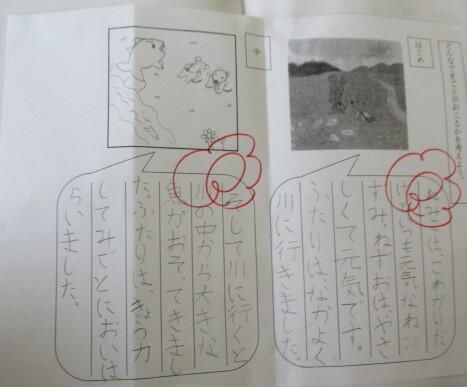 どんなできごとがおこるかを考えよう。
はじめ
ねみこは、こわがりだ
けどいつも元気なね
すみ。ねずおは、やさ
しくて元気です。
ふたりは、なかよく
川に行きました。
中
そして川に行くと
川の中から大きな
魚がおそってきまし
た。ふたりは、きょう力
してみごとにおいは
らいました。